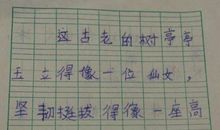 这古老的树亭亭
玉立得像一位仙女，
坚韧挺拔得像一座高